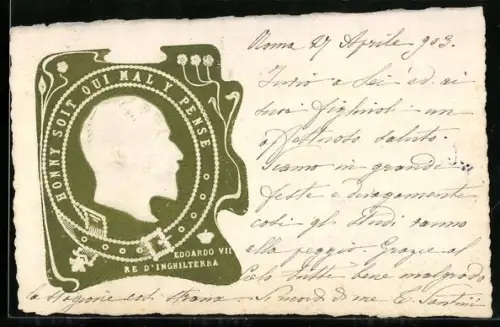 HONNY SOIT QUI MAL Y PENSE
EDOARDO VII
RE D'INGHILTERRA
Roma 27 Aprile 903.
Invio a Lei ed ai
suoi figliuoli un
affettuoso saluto.
Siamo in grandi
feste e
così gli studi vanno
alla peggio Grazie al
Cielo tutti bene malgrado
la stagione così strana Si ricordi di me E.